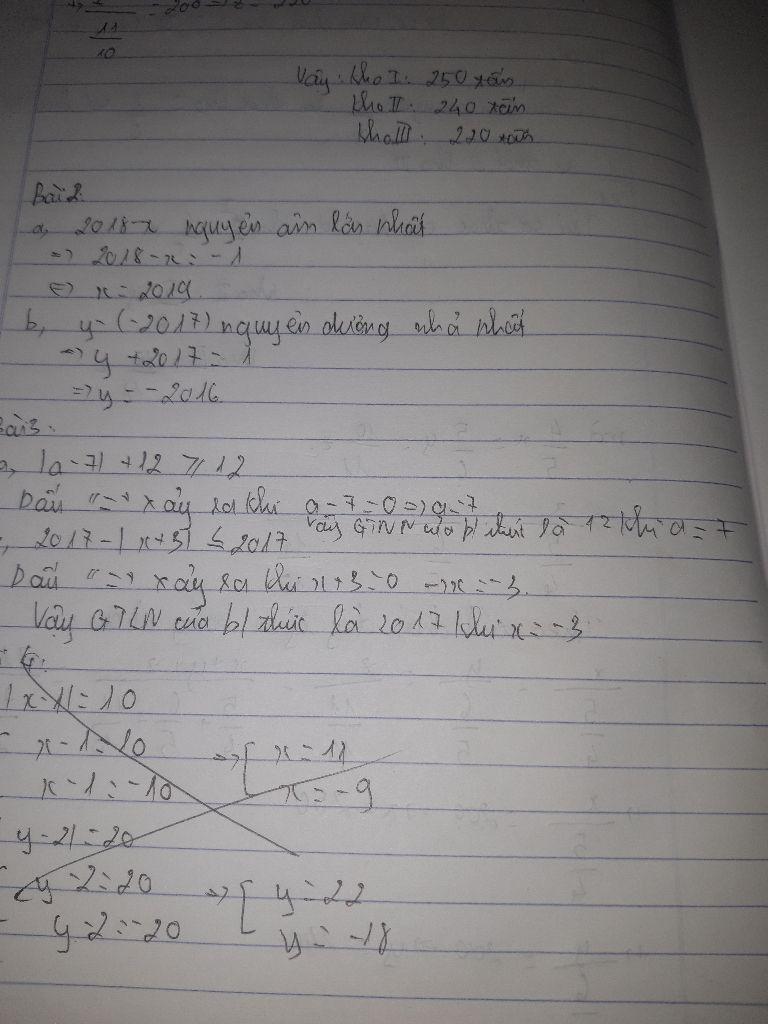 = 200 => z = 220
11
10
Vậy: kho I: 250 tấn
kho II: 240 tấn
kho III: 220 tấn
Bài 2:
a, 2018-x nguyên âm lớn nhất
=> 2018-x = -1
<=> x = 2019.
b, y-(-2017) nguyên dương nhỏ nhất
=> y + 2017 = 1
=> y = -2016
Bài 3:
a, |a-7| + 12 ≥ 12
Dấu "=" xảy ra khi a-7=0 => a=7
Vậy GTNN của b/ thức là 12 khi a = 7
, 2017-|x+3| ≤ 2017
Dấu "=" xảy ra khi x+3=0 => x=-3.
Vậy GTLN của b/ thức là 2017 khi x=-3
4:
|x-1|=10
x-1=10 => [ x=11
x-1=-10 x=-9
y-2|=20
y-2=20 => [ y=22
y-2=-20 y=-18